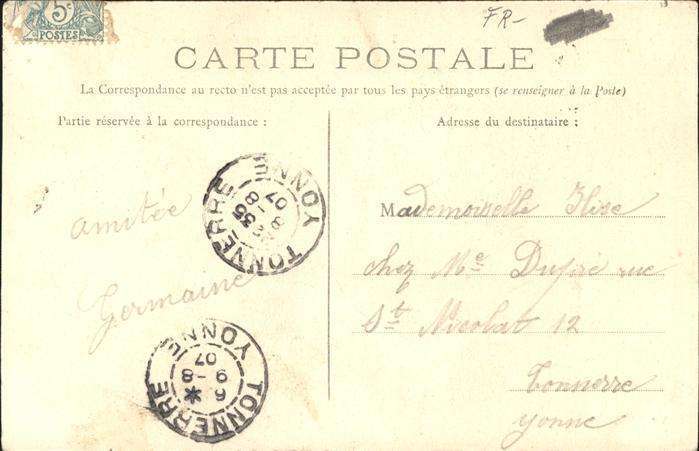 5c
POSTES
FR-
CARTE POSTALE
La Correspondance au recto n'est pas acceptée par tous les pays étrangers (se renseigner à la Poste)
Partie réservée à la correspondance :
amitée
Germaine
Adresse du destinataire :
Mademoiselle Elise
chez Me rue
St Nicolas 12
Tonnerre
Yonne
TONNERRE
YONNE
8 35
8 - 8
07
TONNERRE
YONNE
6 *
9 - 8
07